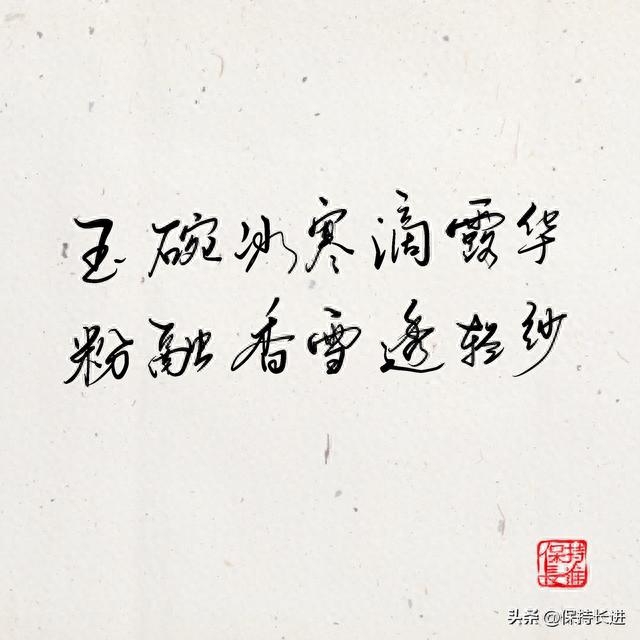 玉碗冰寒滴露华
粉融香雪透轻纱
保持長進
头条 @保持长进